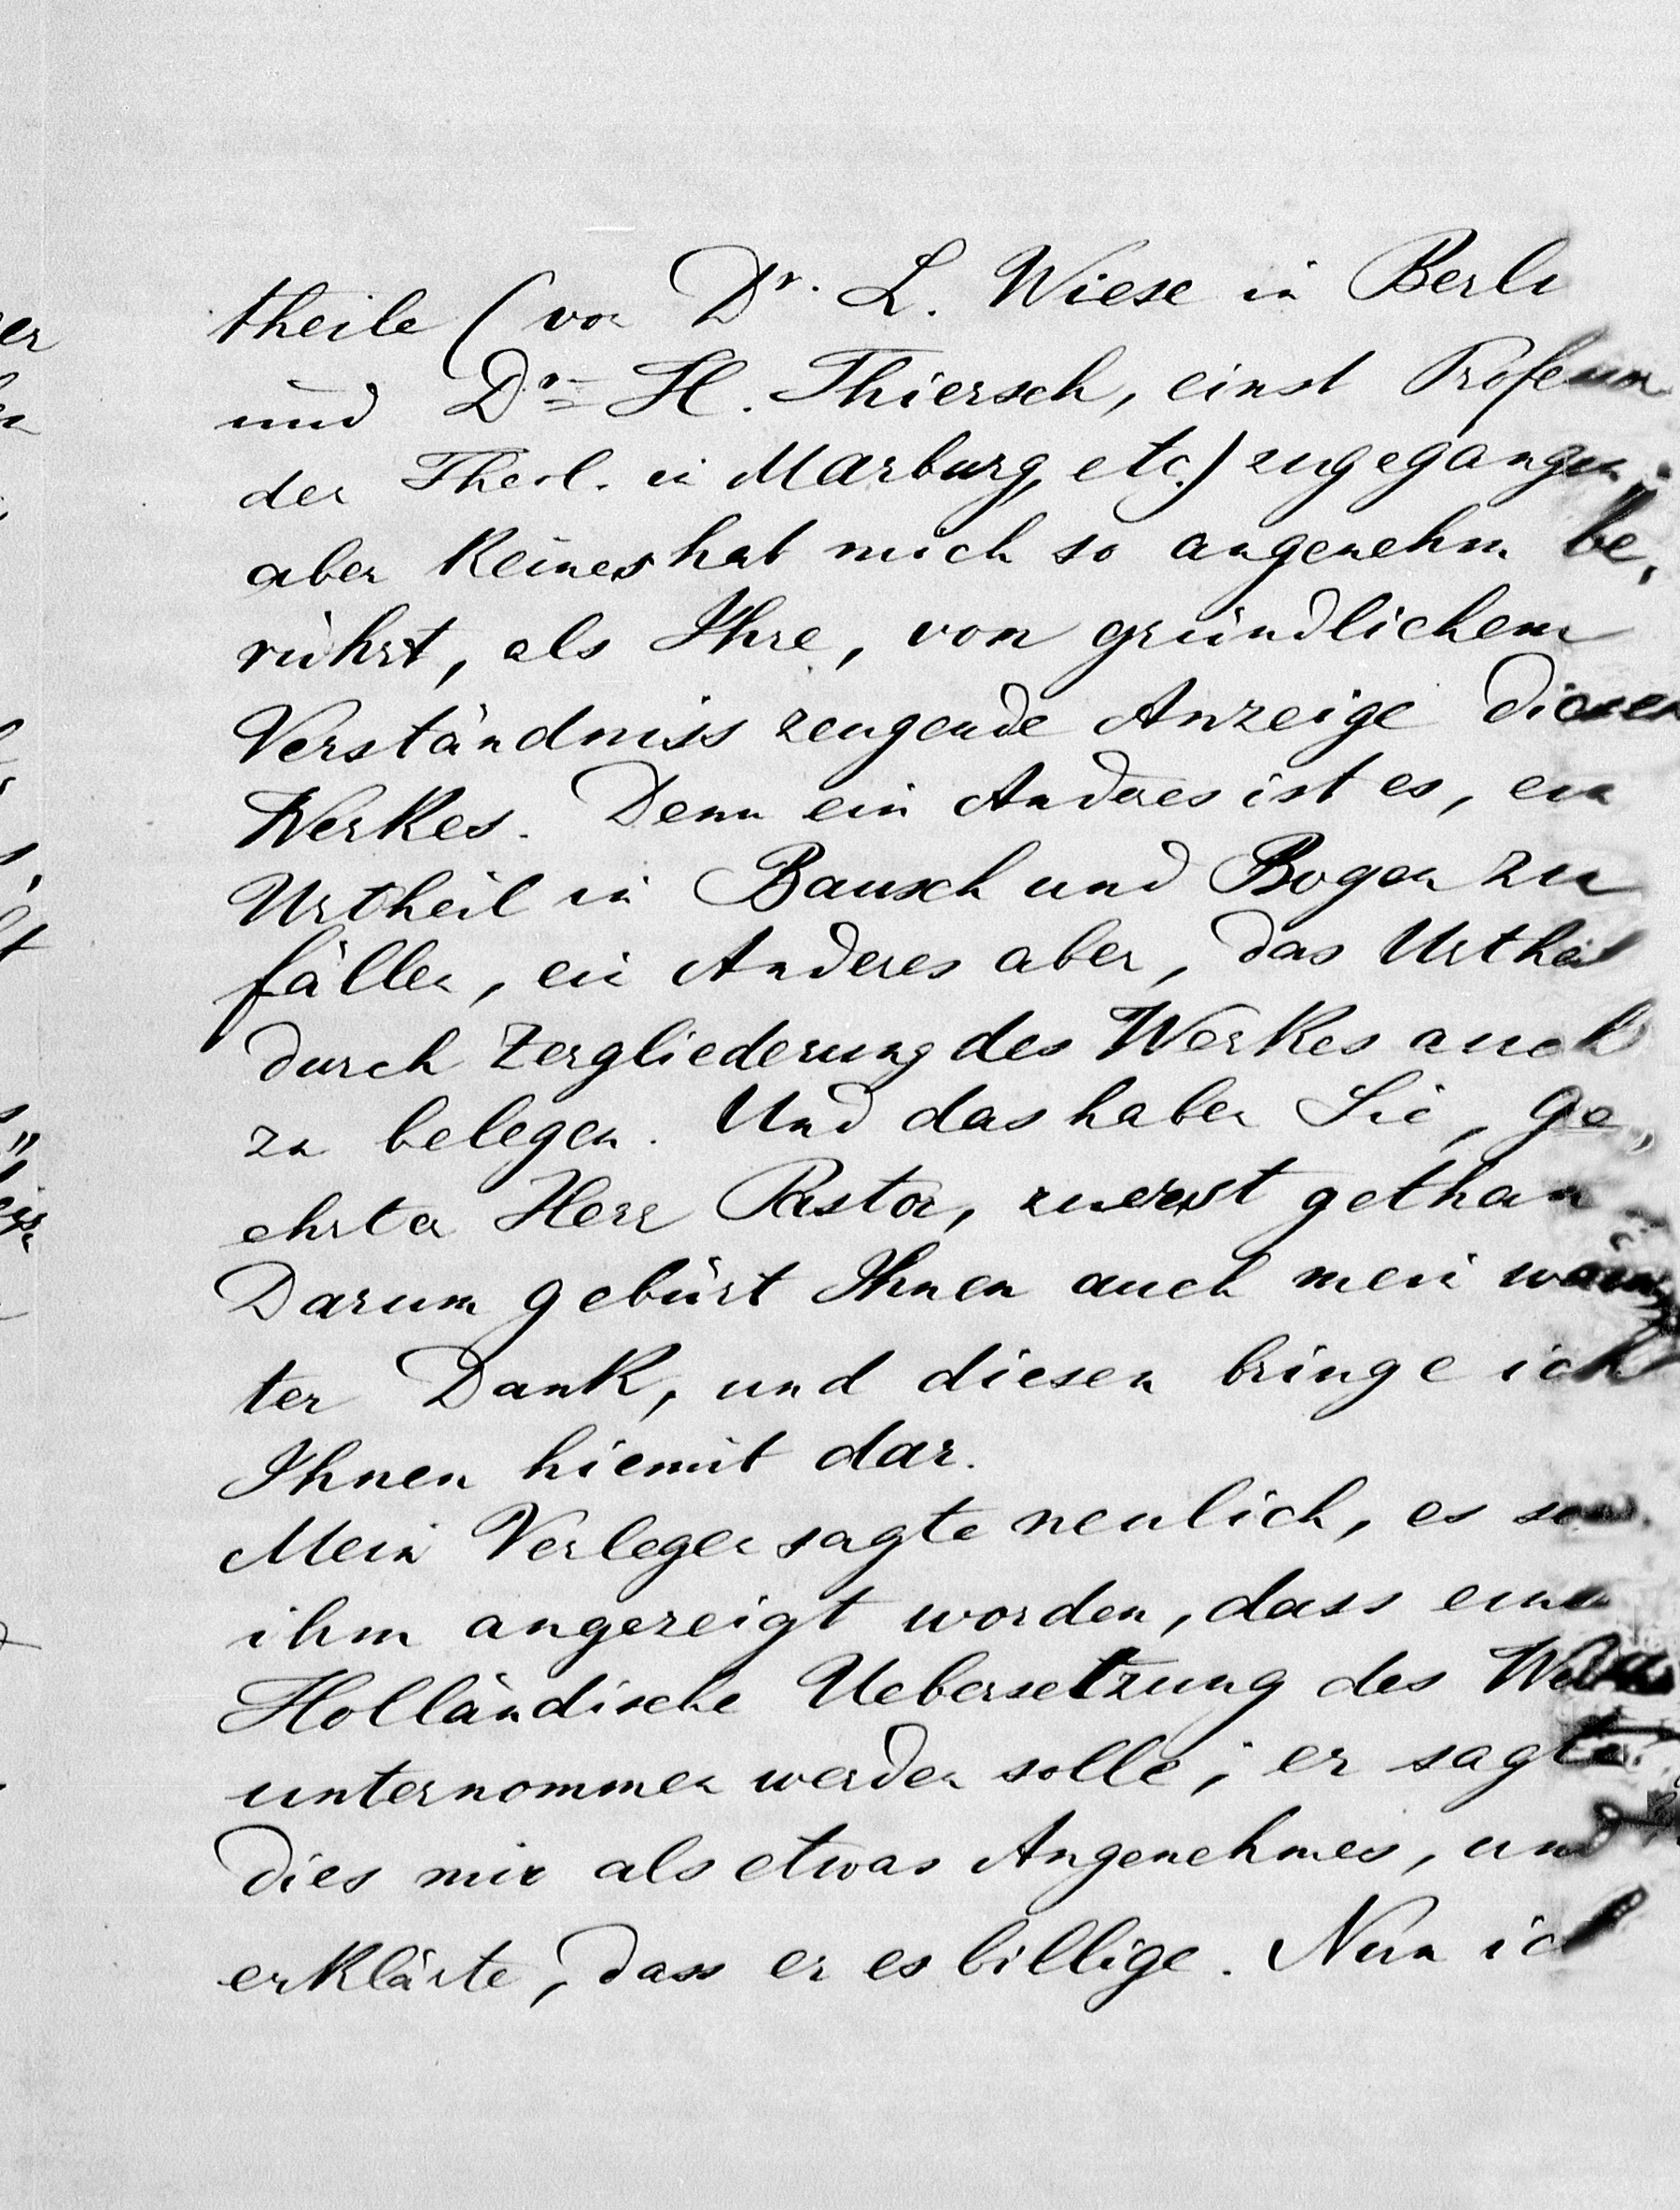 theile (von Dr. L. Wiese in Berlin
und Dr. H. Thiersch, einst Professor
der Theol. in Marburg, etc.) zugegangen;
aber Keines hat mich so angenehm be,
rührt, als Ihre, von gründlichem
Verständniss zeugende Anzeige dieses
Werkes. Denn ein Anderes ist es, ein
Urtheil in Bausch und Bogen zu
fällen, ein Anderes aber, das Urtheil
durch Zergliederung des Werkes auch
zu belegen. Und das haben Sie, ge„
ehrter Herr Pastor, zuerst gethan
Darum gebürt Ihnen auch mein wärms
ter Dank, und diesen bringe ich
Ihnen hiemit dar.
Mein Verleger sagte neulich, es sei
ihm angezeigt worden, dass eine
Holländische Uebersetzung des Werkes
unternommen werden solle; er sagte
dies mir als etwas Angenehmes, und
erklärte, dass er es billige. Nun ich